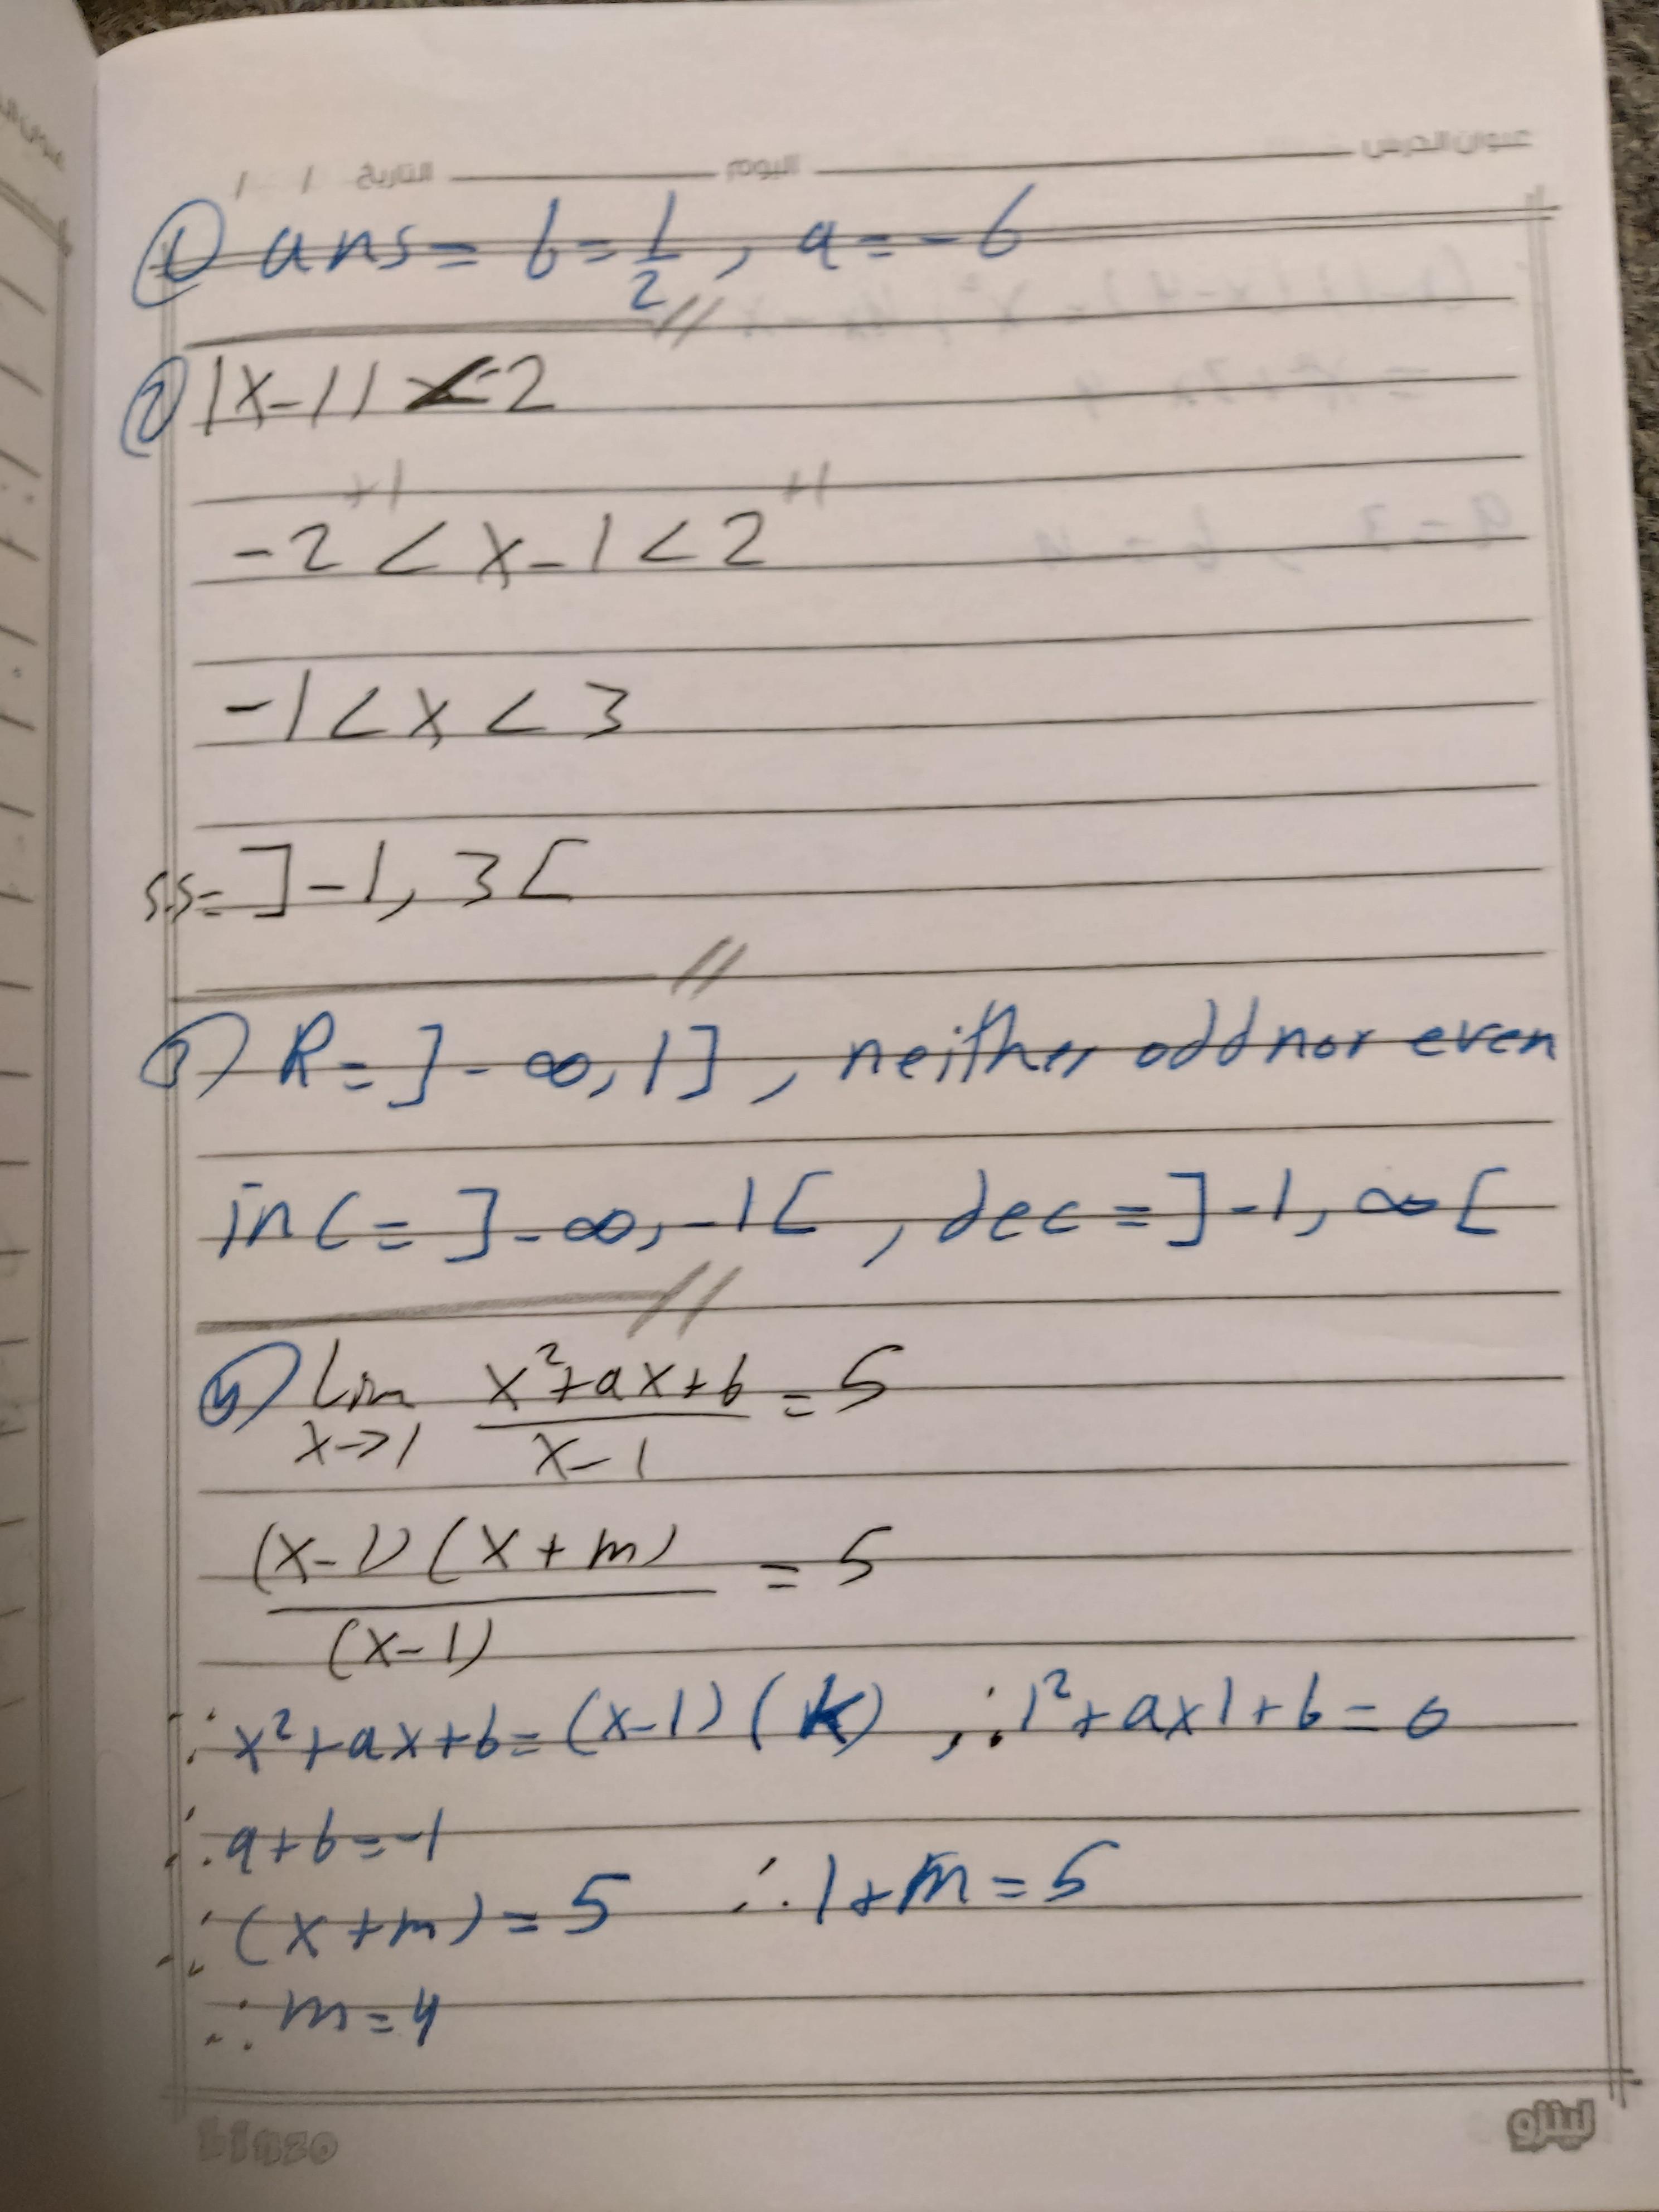 عنوان الدرس اليوم التاريخ / /
① ans = b = 1/2 , a = -6
② |x-1| < 2
+1 +1
-2 < x-1 < 2
-1 < x < 3
s.s = ]-1, 3[
③ R = ]-∞, 1] , neither odd nor even
inc = ]-∞, -1[ , dec = ]-1, ∞[
④ Lim x→1 (x²+ax+b)/(x-1) = 5
(x-1)(x+m)/(x-1) = 5
∴ x²+ax+b = (x-1)(k) , ∴ 1²+ax1+b = 0
∴ a+b = -1
∴ (x+m) = 5 ∴ 1+m = 5
∴ m = 4
Linzo لينزو